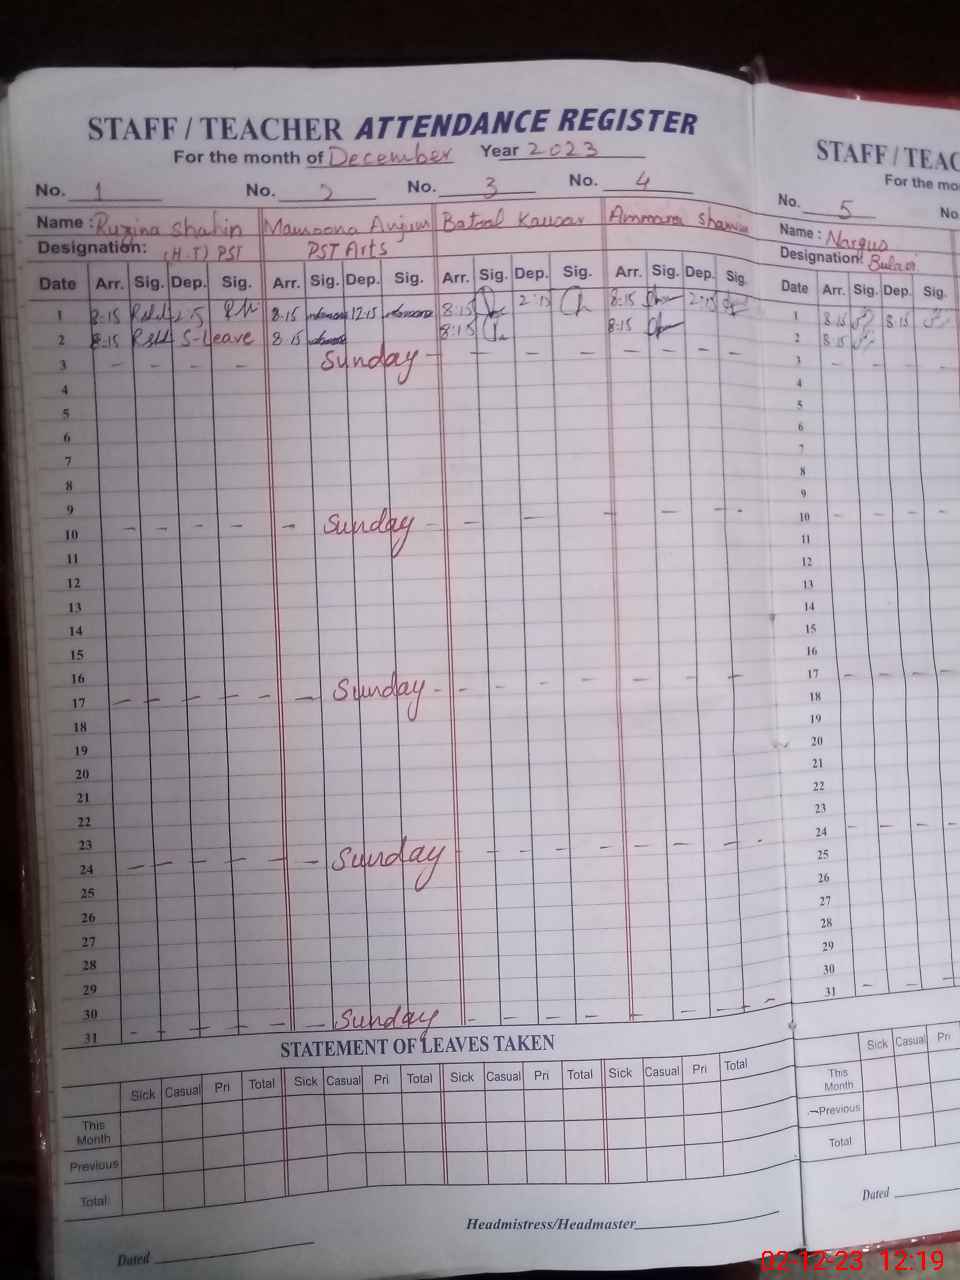 STAFF / TEACHER ATTENDANCE REGISTER
For the month of December Year 2023
No. 1 No. 2 No. 3 No. 4
Name : Ruzina Shahin Maimoona Anjum Batool Kausar Ammara
Designation: (H.T) PST PST Arts
Date Arr. Sig. Dep. Sig. Arr. Sig. Dep. Sig. Arr. Sig. Dep. Sig. Arr. Sig. Dep. Sig.
1 8:15 8.15 12.15 8:15 2:15 8:15 2:15
2 8:15 S-Leave 8.15 8:15 8:15
3 – – – – Sunday – – – – – – – –
4
5
6
7
8
9
10 – – – – – Sunday – – – – – – –
11
12
13
14
15
16
17 – – – – – Sunday – – – – – – –
18
19
20
21
22
23
24 – – – – – – Sunday – – – – – – –
25
26
27
28
29
30
31 – – – – – Sunday – – – – – – – –
STATEMENT OF LEAVES TAKEN
Sick Casual Pri Total Sick Casual Pri Total Sick Casual Pri Total Sick Casual Pri Total
This Month
Previous
Total
Headmistress/Headmaster
Dated
STAFF / TEAC
For the mo
No. 5 No
Name : Nargus
Designation:
Date Arr. Sig. Dep. Sig.
1 8:15 8:15
2 8:15
3 – – –
4
5
6
7
8
9
10 – – –
11
12
13
14
15
16
17 – – –
18
19
20
21
22
23
24 – – –
25
26
27
28
29
30
31 – – –
Sick Casual Pri
This Month
Previous
Total
Dated
02-12-23 12:19